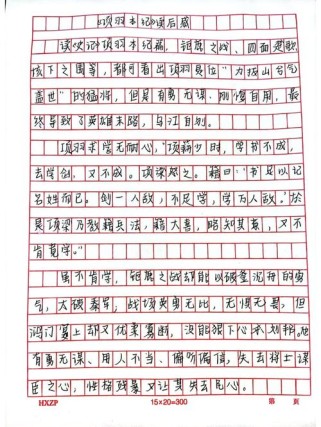 《项羽本纪》读后感
读史记项羽本纪篇，钜鹿之战、四面楚歌、
垓下之围等，都可看出项羽是位“力拔山兮气
盖世”的猛将，但是有勇无谋、刚愎自用，最
终导致了英雄末路，乌江自刎。
项羽求学无耐心，“项籍少时，学书不成，
去学剑，又不成。项梁怒之。籍曰：“书足以记
名姓而已。剑一人敌，不足学，学万人敌。”於
是项梁乃教籍兵法，籍大喜，略知其意，又不
肯竟学。”
虽不肯学，钜鹿之战却能以破釜沉舟的勇
气，大破秦军，战项英勇无比，无惧无畏，但
鸿门宴上却又优柔寡断，没能狠下心杀刘邦。他
有勇无谋、用人不当、偏听偏信，失去将士谋
臣之心，性格残暴又让其失去民心。
HXZP 15×20=300 第 页